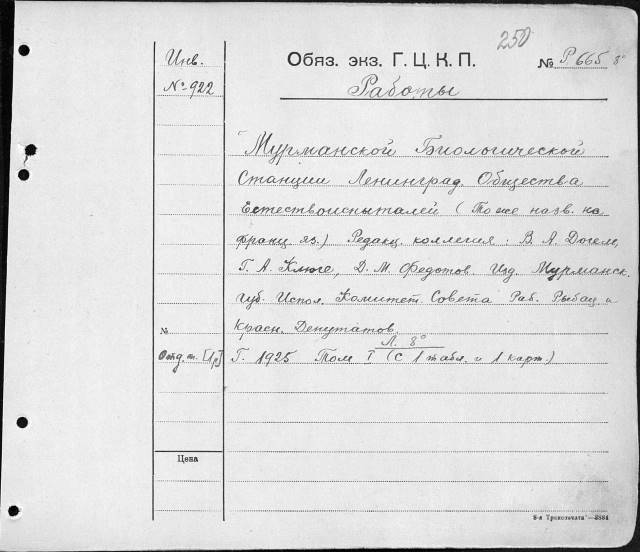 250
Инв.
№ 922
Обяз. экз. Г. Ц. К. П. № Р. 665 8°
Работы
Мурманской Биологической
Станции Ленинград. Общества
Естествоиспыталей (То же назв. на
франц. яз.) Редакц. коллегия: В. А. Догель,
Г. А. Клюге, Д. М. Федотов. Изд. Мурманск.
губ. Испол. Комитет. Совета Раб. Рыбац. и
Красн. Депутатов.
№
Л. 8°
Отд. т. [1 р.] Г. 1925 Том I (с 1 табл. и 1 карт.)
Цена